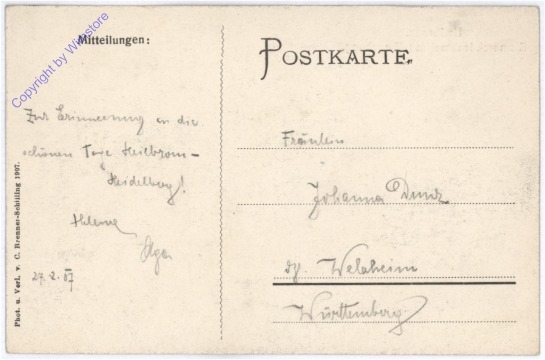 Copyright by Wiwstore
Mitteilungen:
POSTKARTE.
Zur Erinnerung an die
schönen Tage Heilbronn-
Heidelberg!
Helene
Olga
27. 2. 07
Fräulein
Johanna
Welzheim
Württemberg
Phot. u. Verl. v. C. Brenner-Schilling 1907.